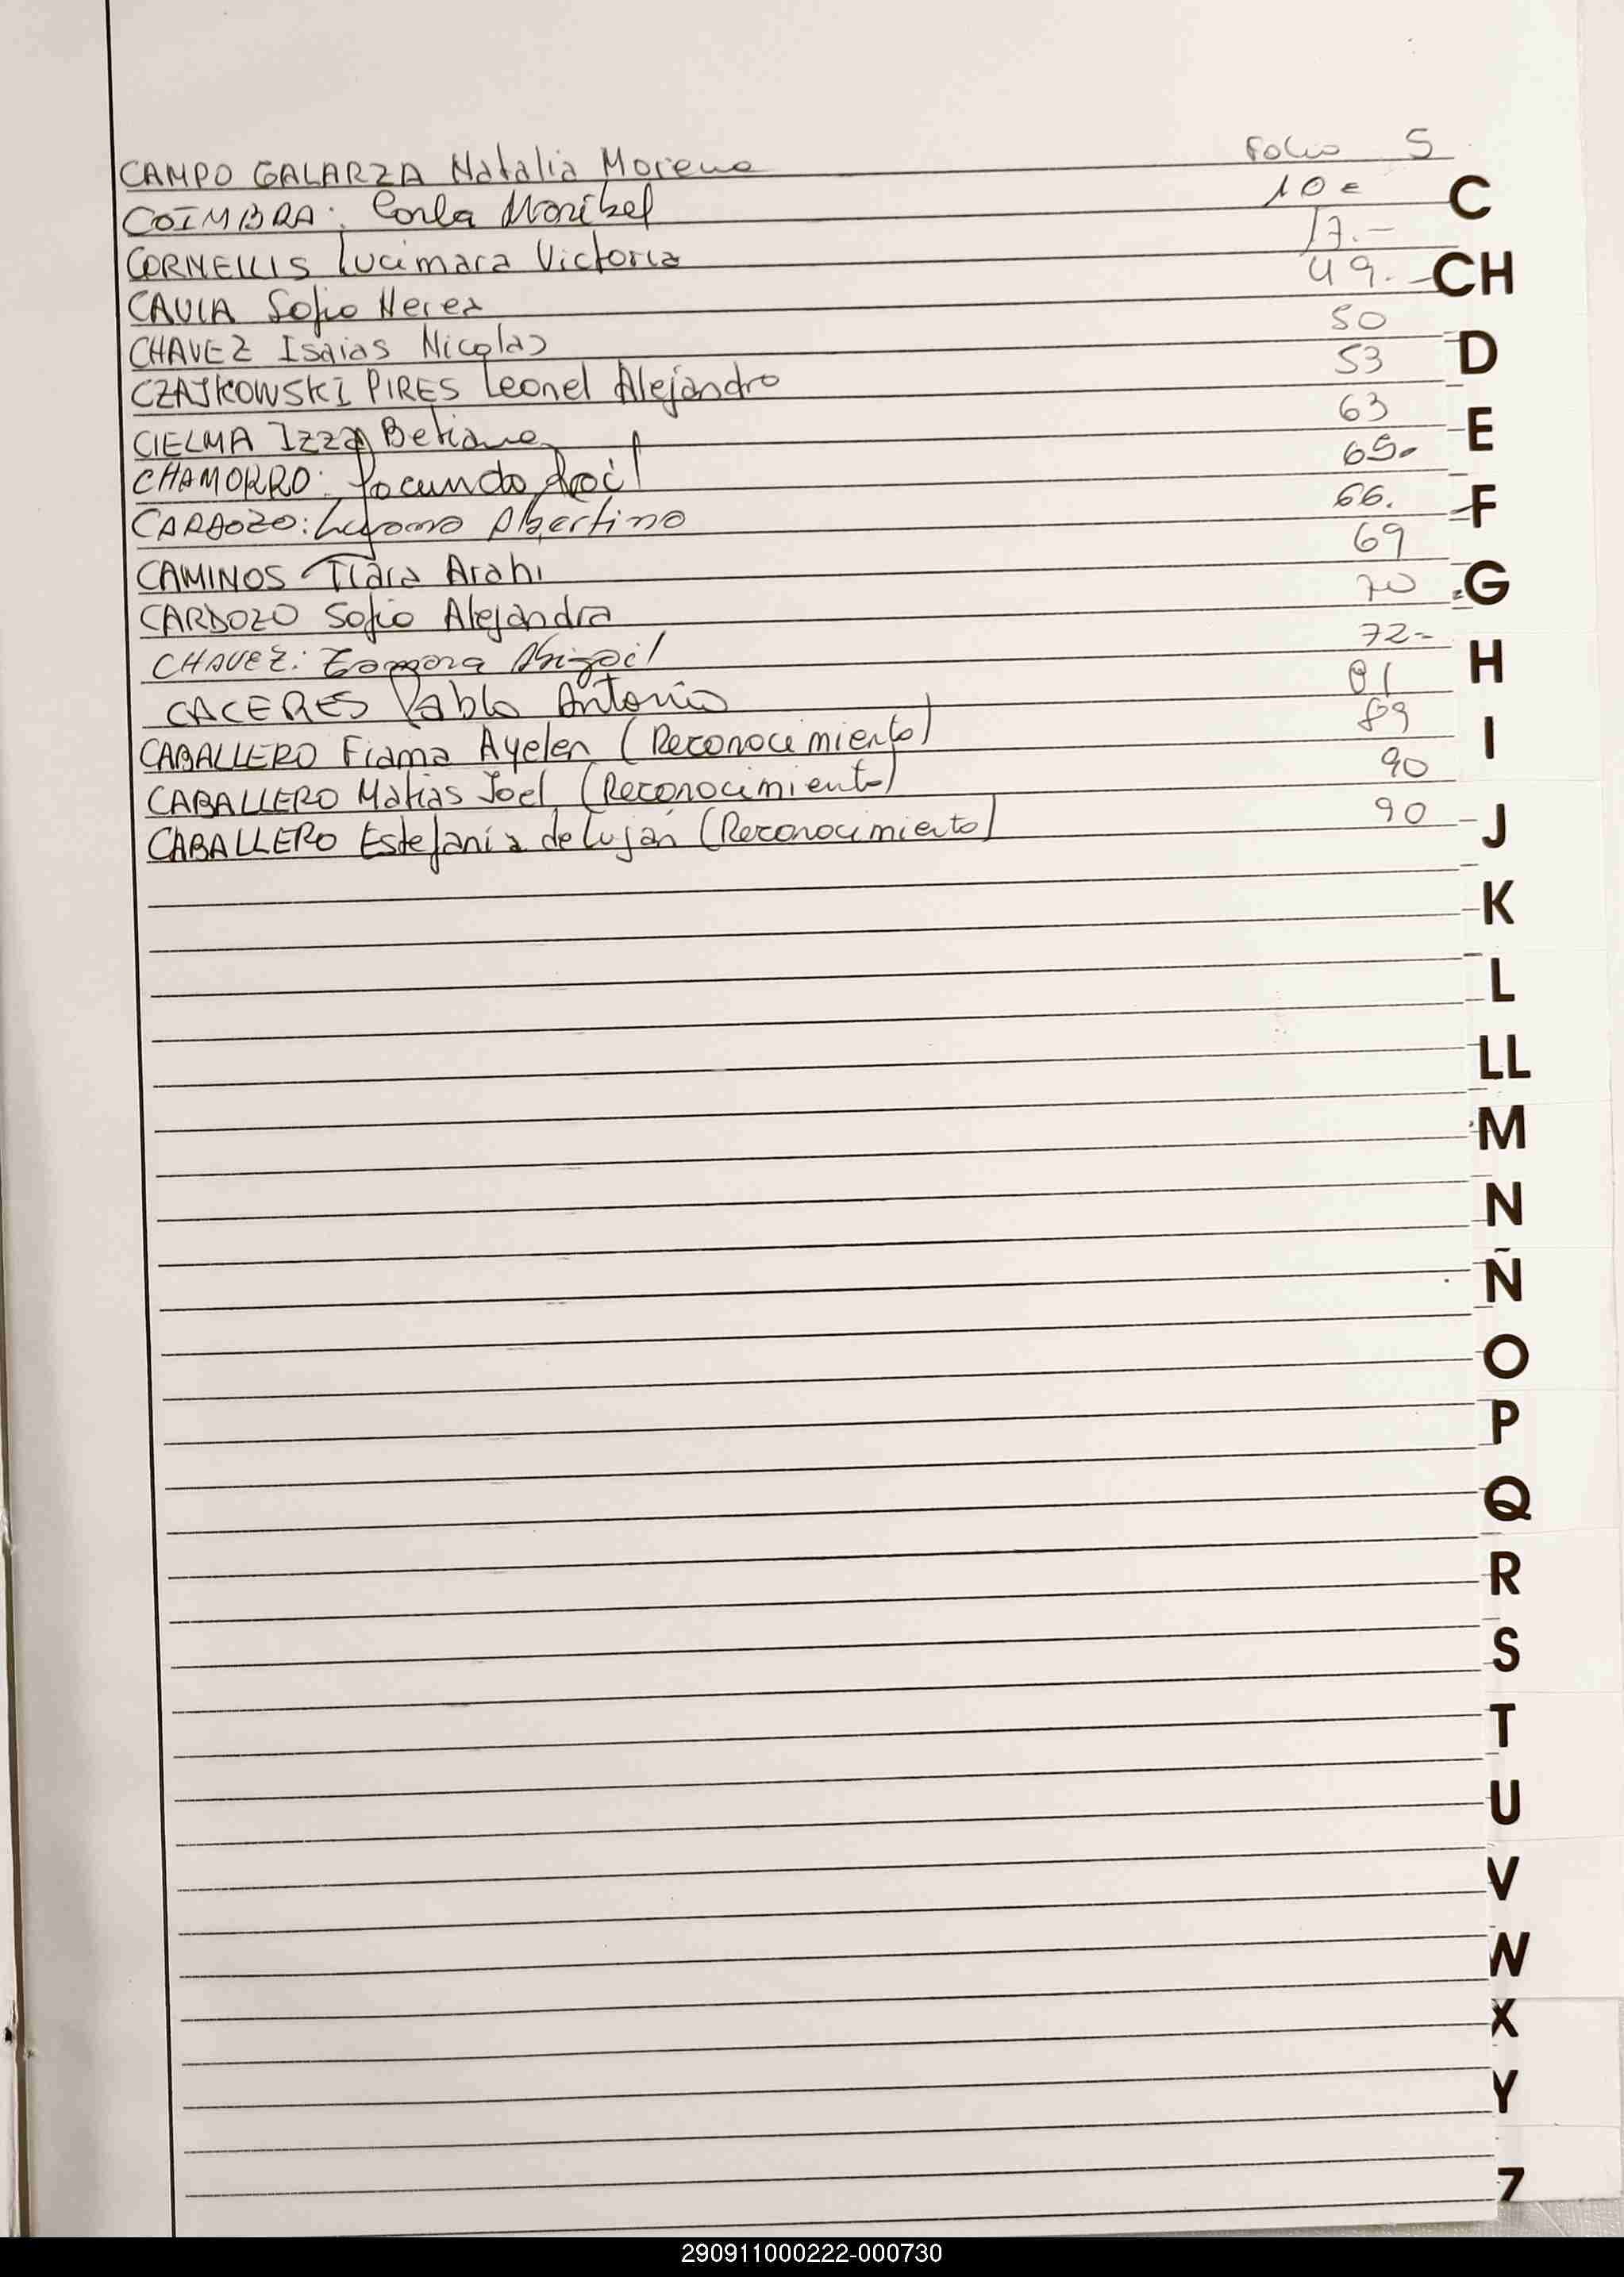 CAMPO GALARZA Natalia Morena Folio 5
COIMBRA: Carla Maribel 10
CORNELLIS Lucimara Victoria 17.-
CAULA Sofia Nerea 49.-
CHAVEZ Isaias Nicolas 50
CZAJKOWSKI PIRES Leonel Alejandro 53
CIELMA Izza Betiane 63
CHAMORRO: Facundo 65.
CARDOZO: Albertino 66.
CAMINOS Tiara Arahi 69
CARDOZO Sofia Alejandra 70
CHAVEZ: Abigail 72-
CACERES Pablo Antonio 81
CABALLERO Fiama Ayelen (Reconocimiento) 89
CABALLERO Matias Joel (Reconocimiento) 90
CABALLERO Estefania de Luján (Reconocimiento) 90
C
CH
D
E
F
G
H
I
J
K
L
LL
M
N
Ñ
O
P
Q
R
S
T
U
V
W
X
Y
Z
290911000222-000730